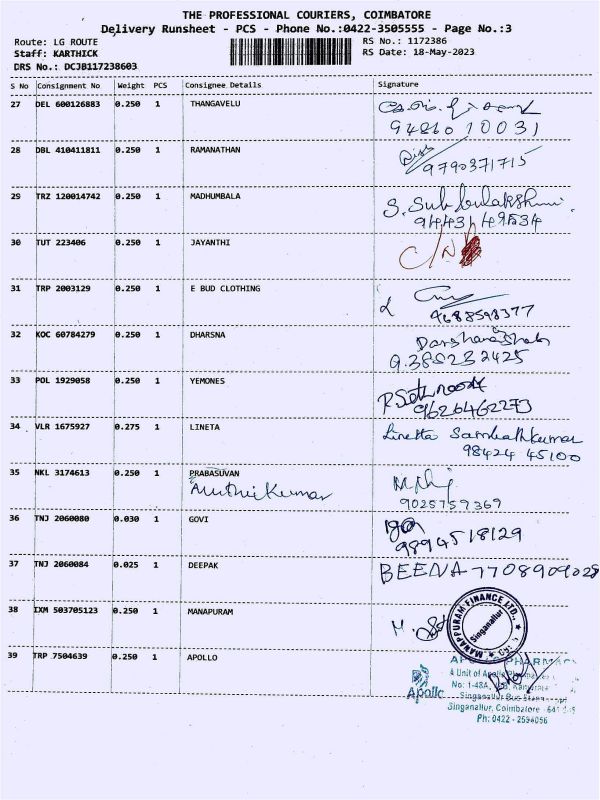 THE PROFESSIONAL COURIERS, COIMBATORE
Delivery Runsheet - PCS - Phone No.:0422-3505555 - Page No.:3
Route: LG ROUTE
RS No.: 1172386
Staff: KARTHICK
RS Date: 18-May-2023
DRS No.: DCJB117238603
S No Consignment No Weight PCS Consignee Details Signature
27 DEL 600126883 0.250 1 THANGAVELU
28 DBL 410411811 0.250 1 RAMANATHAN
9790371715
29 TRZ 120014742 0.250 1 MADHUMBALA S. Subbulakshmi
30 TUT 223406 0.250 1 JAYANTHI
31 TRP 2003129 0.250 1 E BUD CLOTHING
32 KOC 60784279 0.250 1 DHARSNA
33 POL 1929058 0.250 1 YEMONES
9626462273
34 VLR 1675927 0.275 1 LINETA Linetta Sambathkumar
98424 45100
35 NKL 3174613 0.250 1 PRABASUVAN
Muthukumar
9025759369
36 TNJ 2060080 0.030 1 GOVI
9894518129
37 TNJ 2060084 0.025 1 DEEPAK BEENA 7708909028
38 IXM 503705123 0.250 1 MANAPURAM
MANAPPURAM FINANCE LTD.,
Singanallur
39 TRP 7504639 0.250 1 APOLLO
PHARMACY
A Unit of Apollo
Apollo
No: 1-48A,
Singanallur Bus
Singanallur, Coimbatore - 641
Ph: 0422 - 2594056